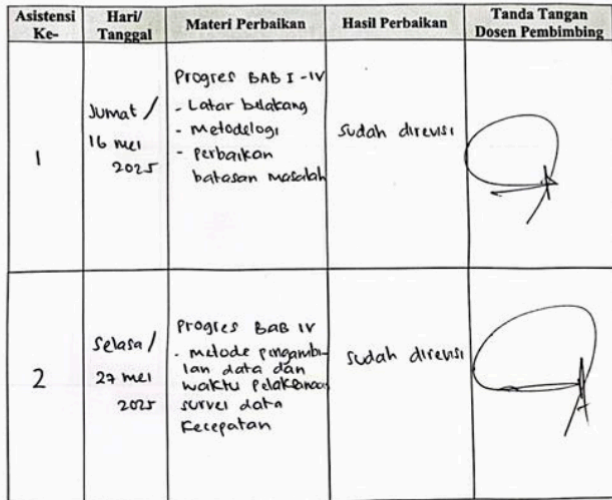 Asistensi Ke-
Hari/ Tanggal
Materi Perbaikan
Hasil Perbaikan
Tanda Tangan Dosen Pembimbing
1
Jumat /
16 mei
2025
Progres BAB I - IV
- Latar belakang
- Metodelogi
- Perbaikan
batasan masalah
sudah direvisi
2
Selasa /
27 mei
2025
Progres BAB IV
- metode pengambi-
lan data dan
waktu pelaksanaan
survei data
Kecepatan
sudah direvisi